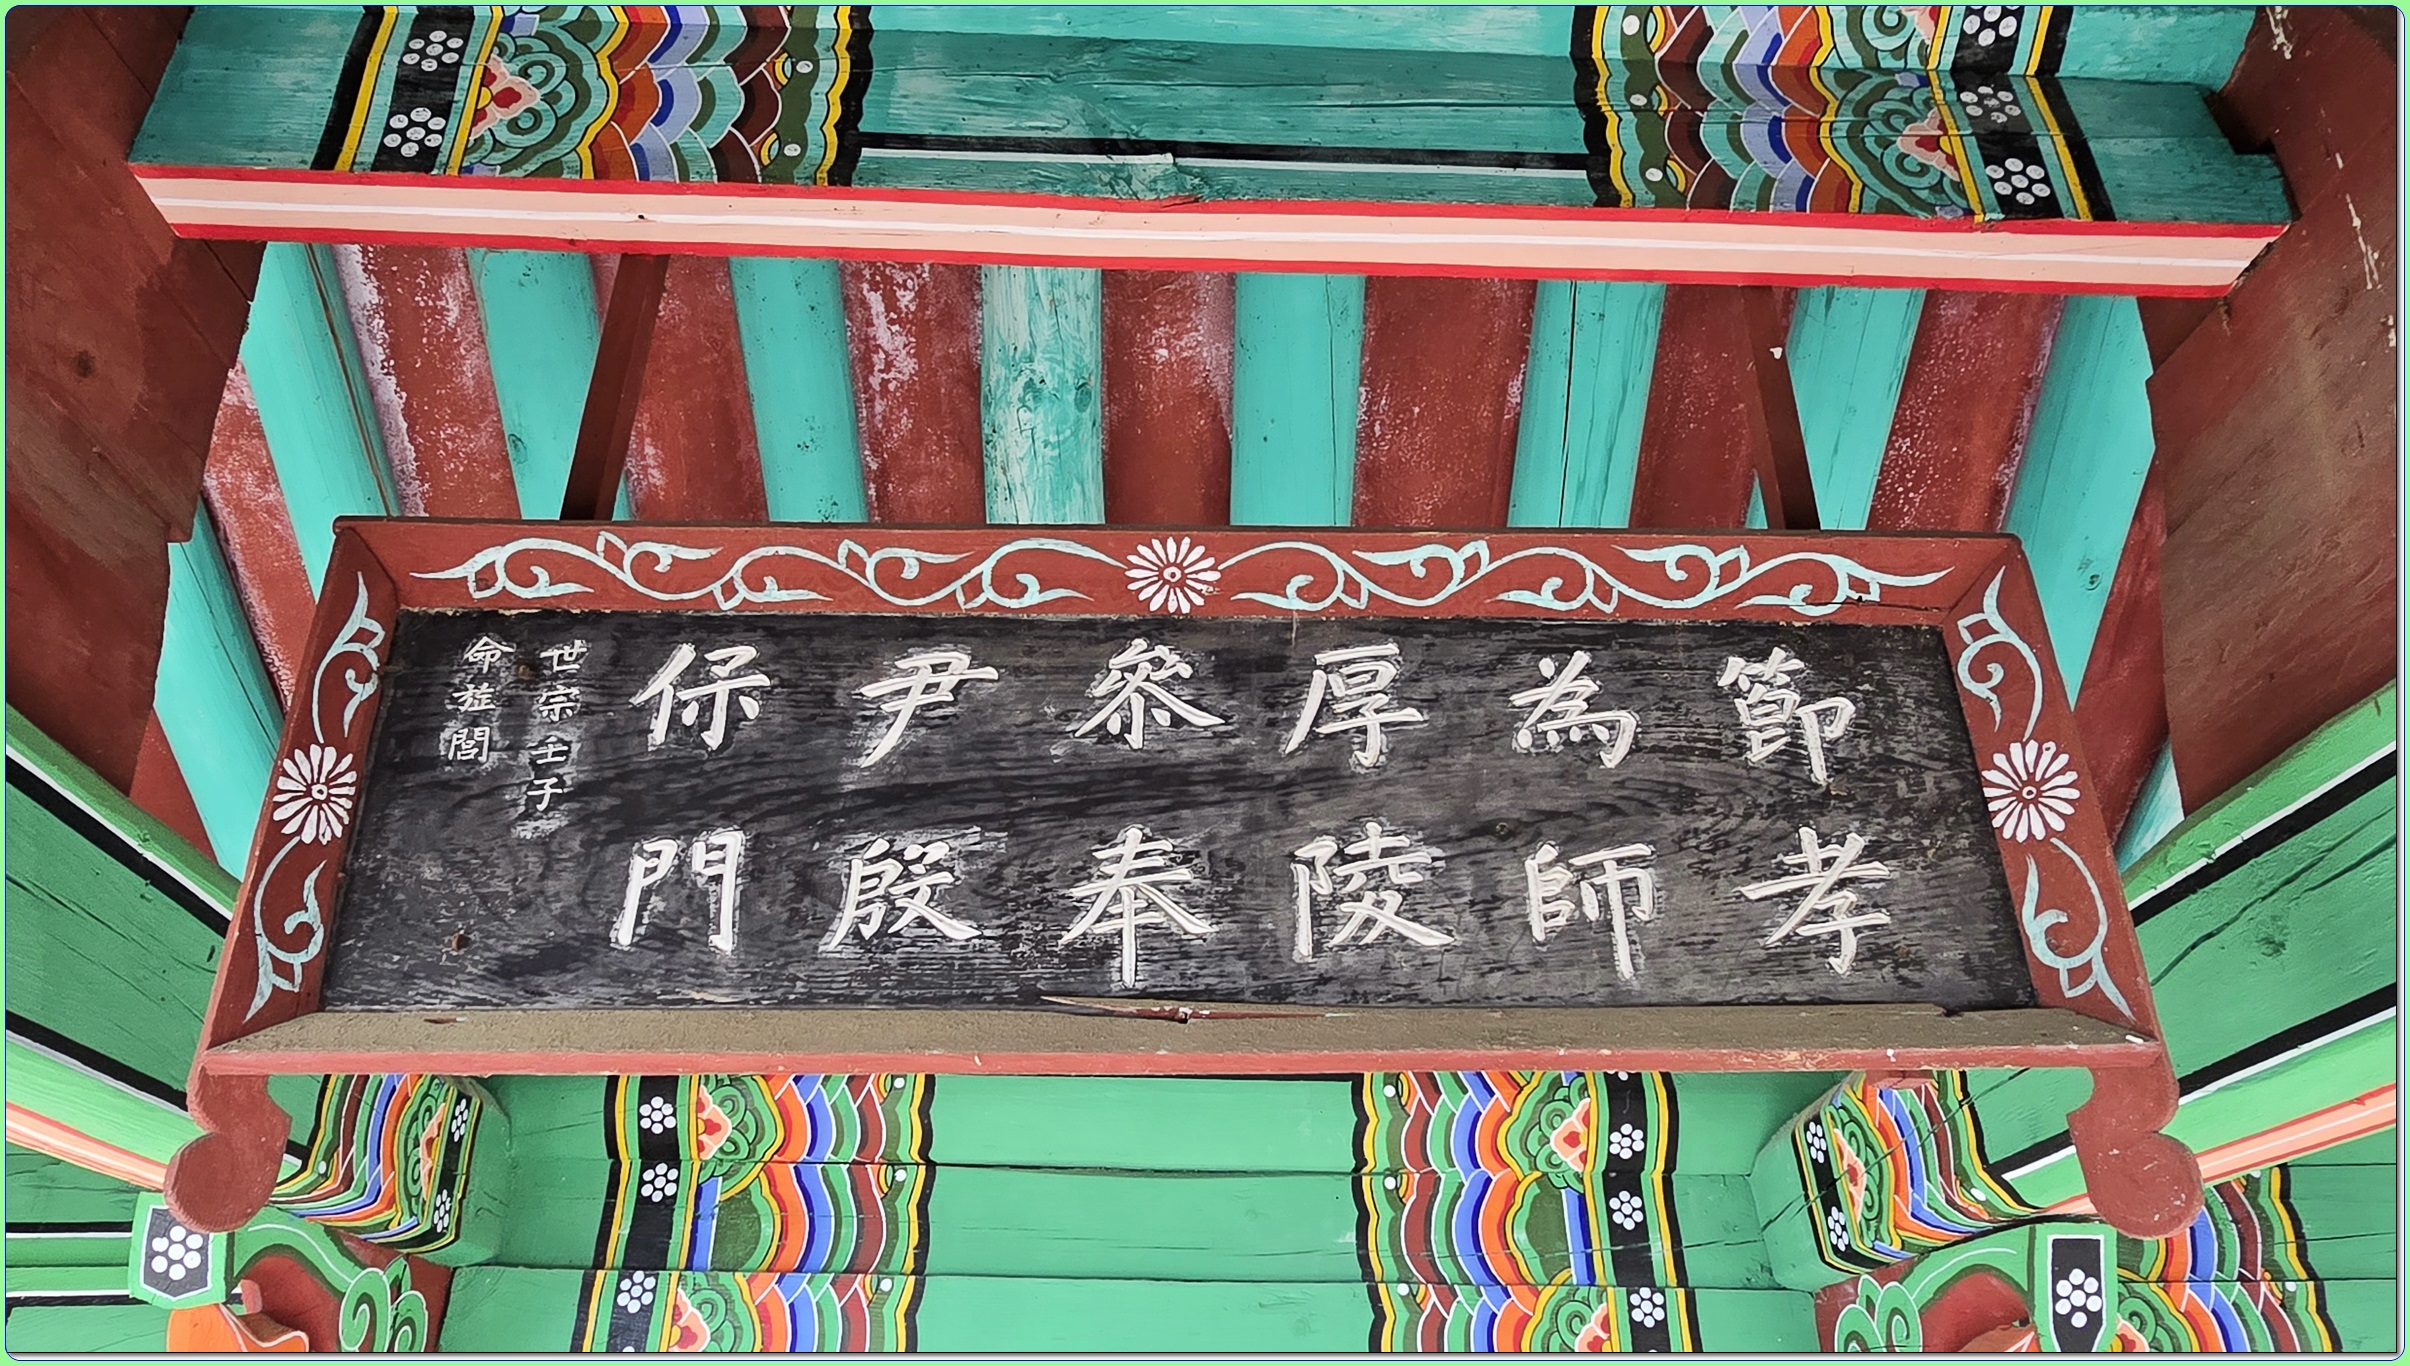 節孝
為師
厚陵
叅奉
尹殷
保門
世宗壬子
命旌閭